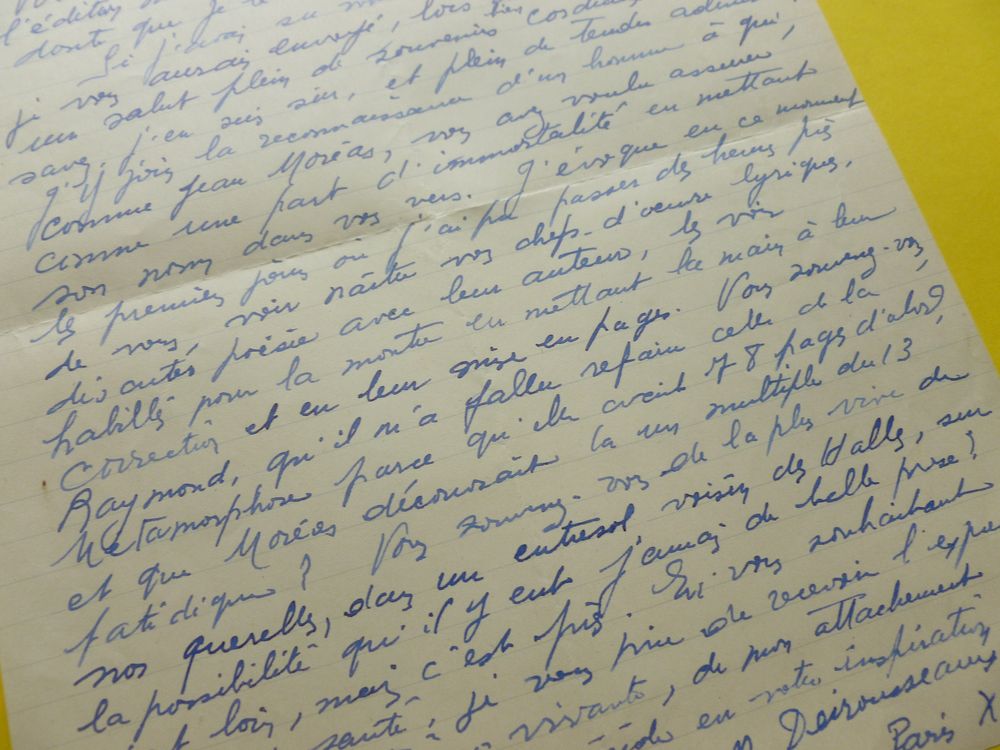 l'éditeur
doute que je
Si j'avais su
je vous aurais envoyé, lors
un salut plein de souvenirs cordiaux
savez, j'en suis sûr, et plein de tendre
q'y joins la reconnaissance d'un homme à qui,
comme Jean Moréas, vous avez voulu assurer
comme une part d'immortalité en mettant
son nom dans vos vers. J'évoque en ce moment
les premiers jours où j'ai pu passer des heures près
de vous, voir naître vos chefs-d'oeuvre lyriques,
discuter poésie avec leur auteur, les voir
habillés pour la montre en mettant la main à leur
correction et en leur mise en pages. Vous souvenez-vous,
Raymond, qu'il m'a fallu refaire celle de la
Métamorphose parce qu'elle avait 78 pages d'abord,
et que Moréas découvrait là un multiple du 13
fatidique ? Vous souvenez-vous de la plus vive de
nos querelles, dans un entresol voisin des Halles, sur
la possibilité qu'il y eut jamais de belle prose ?
loin, mais c'est près. En vous souhaitant
santé, je vous prie de recevoir l'expre
vivante, de mon attachement
en votre inspiration
Desrousseaux
Paris X